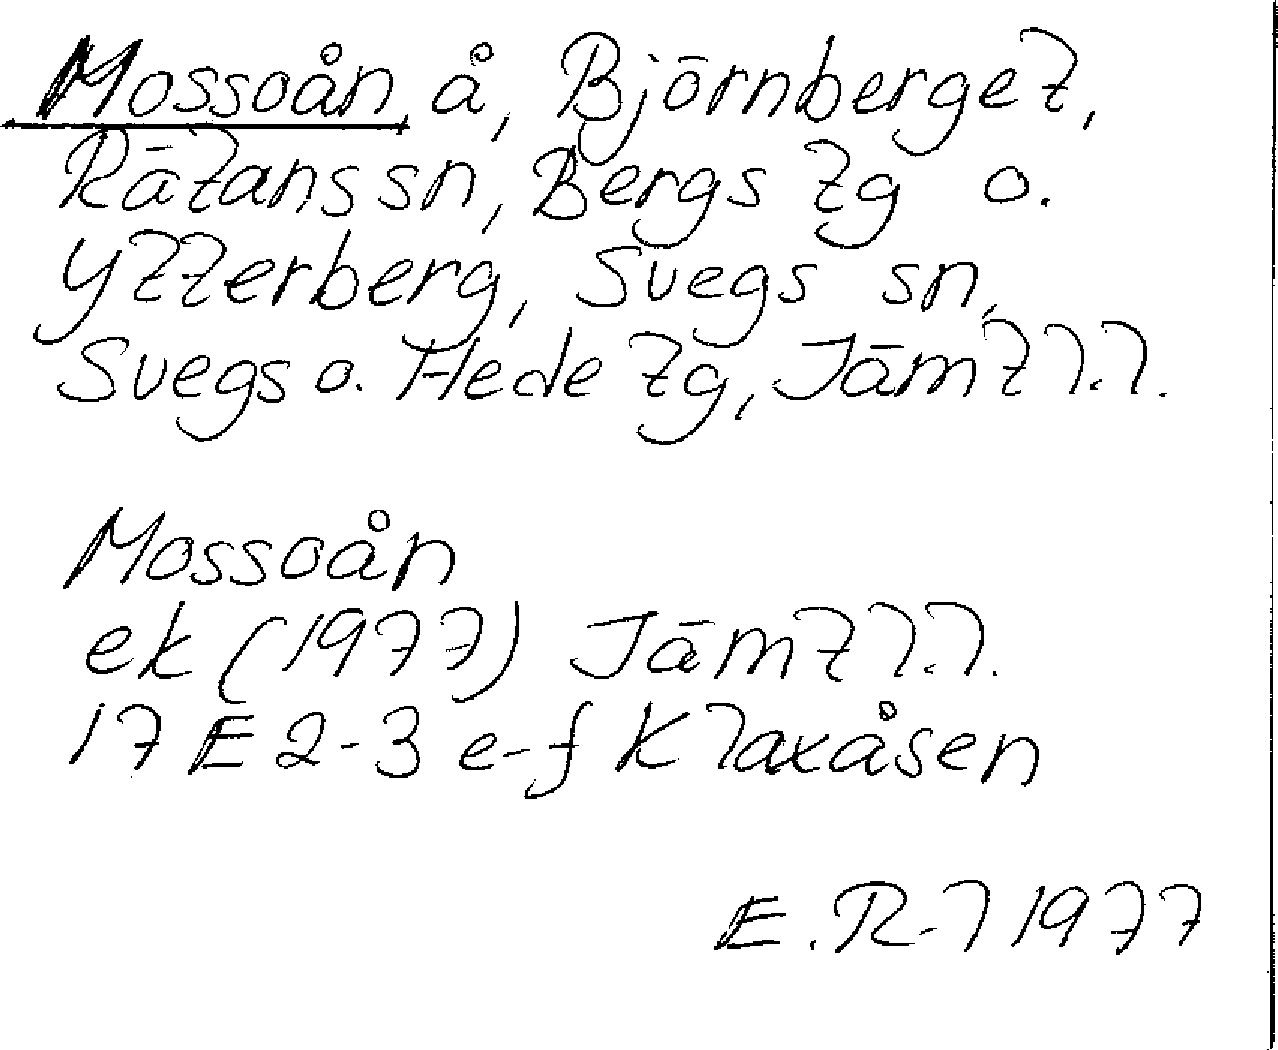 Mossoån, å, Björnberget,
Rätans sn, Bergs tg o.
Ytterberg, Svegs sn,
Svegs o. Hede tg, Jämtl.l.
Mossoån
ek (1977) Jämtl.l.
17 E 2-3 e-f Klaxåsen
E.R-l 1977